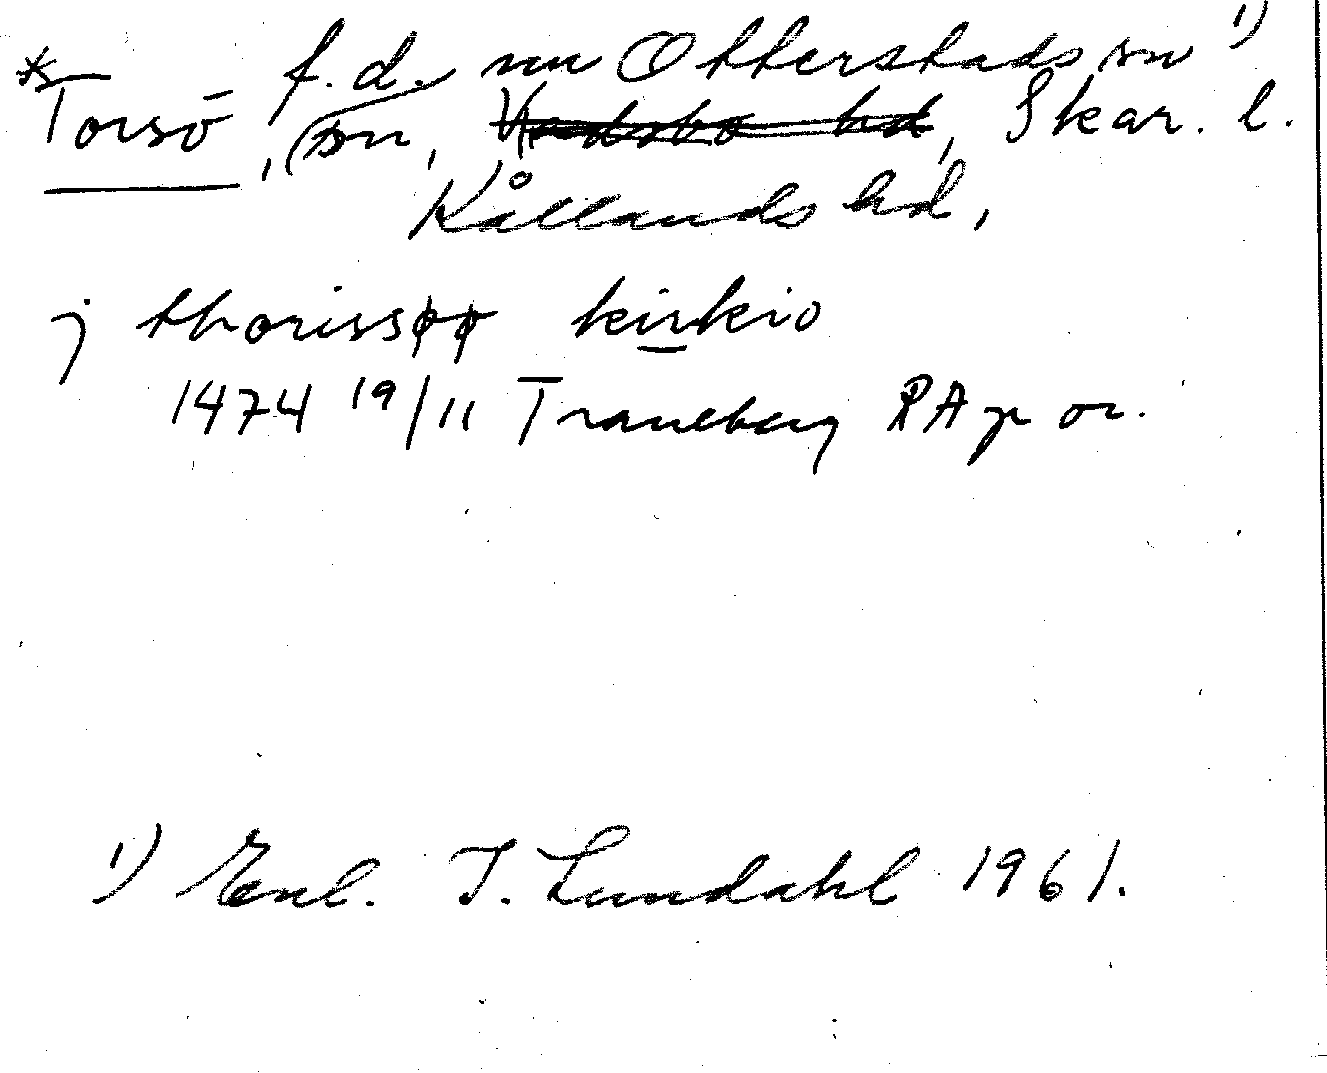 f.d. nu Otterstads sn 1)
*Torsö, sn, Vadsbo hd, Skar. l.
Kållands hd,
j thorissøø kirkio
1474 19/11 Traneberg RAp or.
1) Enl. I. Lundahl 1961.